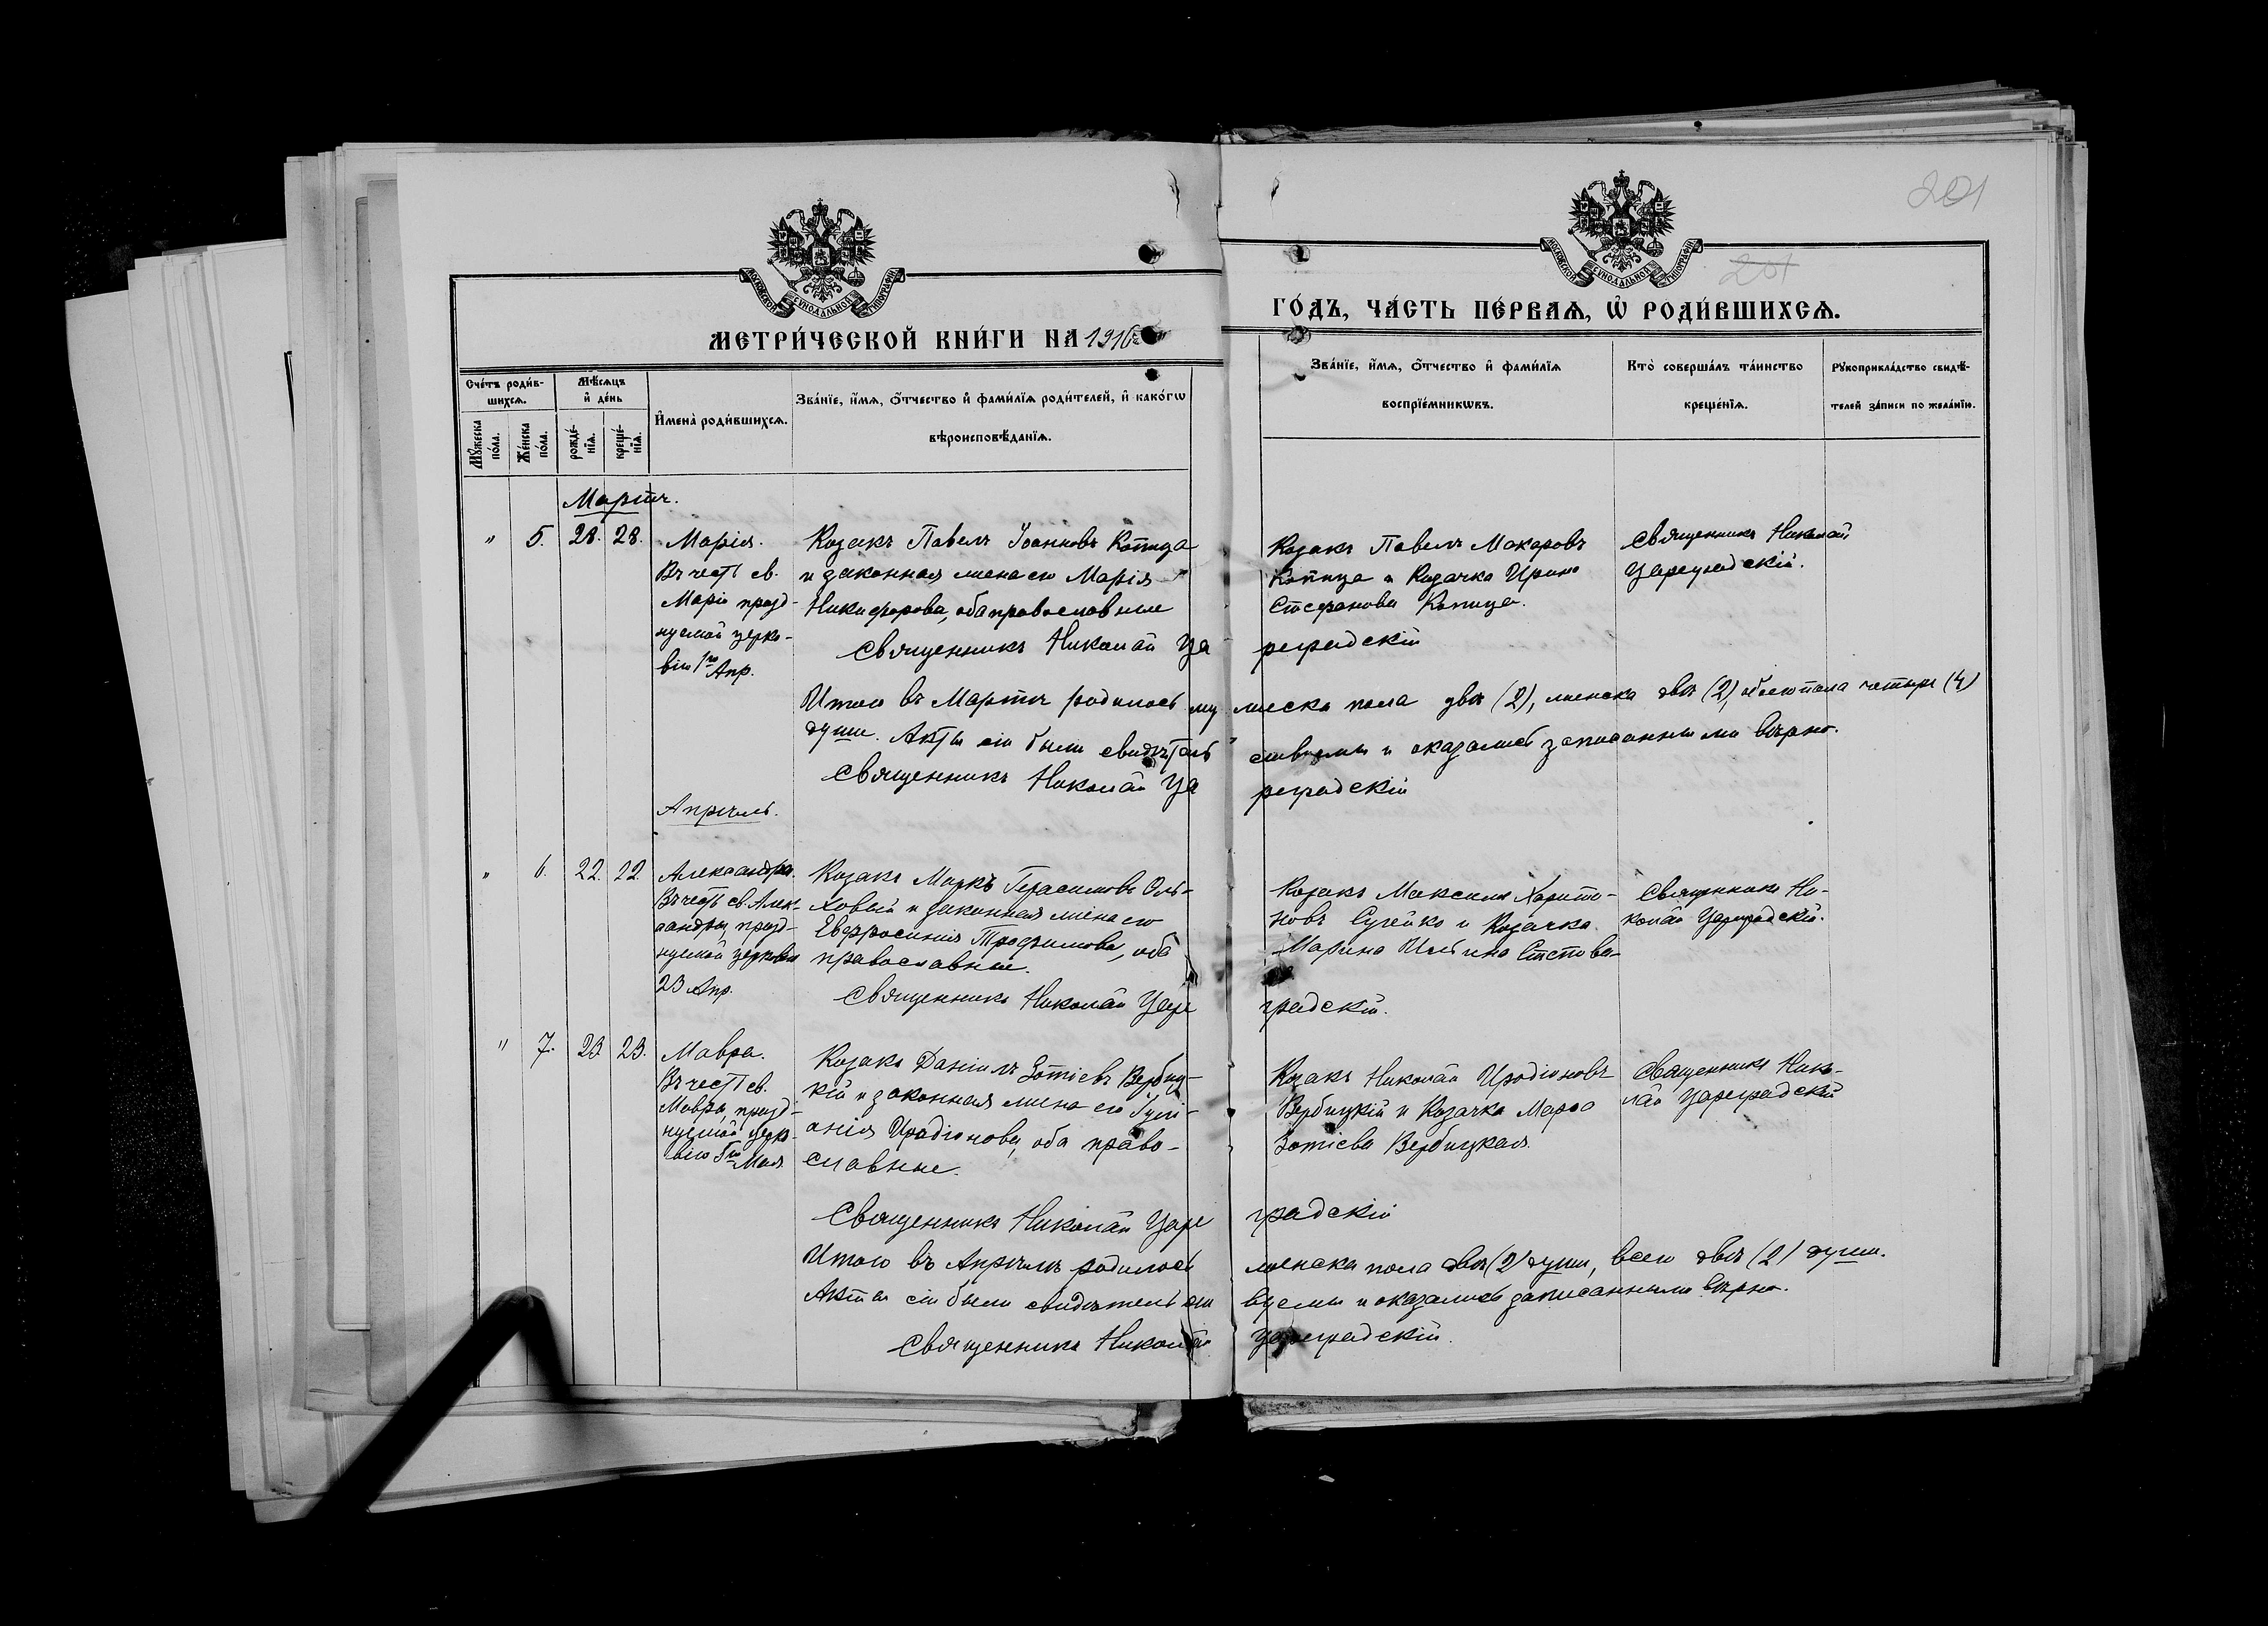 201
201
МОСКОВСКОЙ СѴНОДАЛЬНОЙ ТИПОГРАФІИ
МОСКОВСКОЙ СѴНОДАЛЬНОЙ ТИПОГРАФІИ
МЕТРИ́ЧЕСКОЙ КНИ́ГИ НА 1916
ГО́ДЪ, ЧА́СТЬ ПЕ́РВАѦ, Ѡ҆ РОДИ́ВШИХСѦ.
Сче́тъ роди́в-
шихсѧ.
Мѣ́сѧцъ
и҆ де́нь
Мꙋ́жеска
по́ла.
Же́нска
по́ла.
рожде́-
нїѧ.
креще́-
нїѧ.
И҆мена̀ роди́вшихсѧ.
Зва́нїе, и҆́мѧ, о҆́тчество и҆ фами́лїѧ роди́телей, и҆ како́гѡ
вѣроисповѣ́данїѧ.
Зва́нїе, и҆́мѧ, о҆́тчество и҆ фами́лїѧ
воспрїе́мникѡвъ.
Кто̀ соверша́лъ та́инство
креще́нїѧ.
Рꙋкоприкла́дство свидѣ́-
телей за́писи по жела́нїю.
Мартъ.
" 5. 28. 28.
Марія.
Въ честь св.
Маріи празд-
нуемой церко-
вію 1го Апр.
Козакъ Павелъ Іоанновъ Копица
и законная жена его Марія
Никифорова, оба православные
Козакъ Павелъ Макаровъ
Копица и Козачка Ирина
Стефанова Копица.
Священникъ Николай
Цареградскій.
Священникъ Николай Цареградскій
Итого въ Мартѣ родилось мужеска пола два (2), женска две (2), обоего пола четыре (4)
души. Акты сіи были свидѣтельствуемы и оказались записанными вѣрно.
Священникъ Николай Цареградскій
Апрѣль.
" 6. 22. 22.
Александра.
Въ честь св. Алек-
сандры, празд-
нуемой церковію
23 Апр.
Козакъ Маркъ Герасимовъ Оль-
ховый и законная жена его
Евфросинія Трофимова, оба
православные.
Козакъ Максимъ Харито-
новъ Сучейко и Козачка
Марина Ильина
Священникъ Ни-
колай Цареградскій.
Священникъ Николай Цареградскій.
" 7. 23. 23.
Мавра.
Въ честь св.
Мавры, празд-
нуемой церко-
вію 3го Мая
Козакъ Даніилъ Зотіевъ Вербиц-
кій и законная жена его Іулі-
анія Иродіонова, оба право-
славные.
Козакъ Николай Иродіоновъ
Вербицкій и Козачка Марфа
Зотіева Вербицкая.
Священникъ Нико-
лай Цареградскій
Священникъ Николай Цареградскій
Итого въ Апрѣлѣ родилось женска пола двѣ (2) души, всего двѣ (2) души.
Акты сіи были свидѣтельствуемы и оказались записанными вѣрно.
Священникъ Николай Цареградскій.